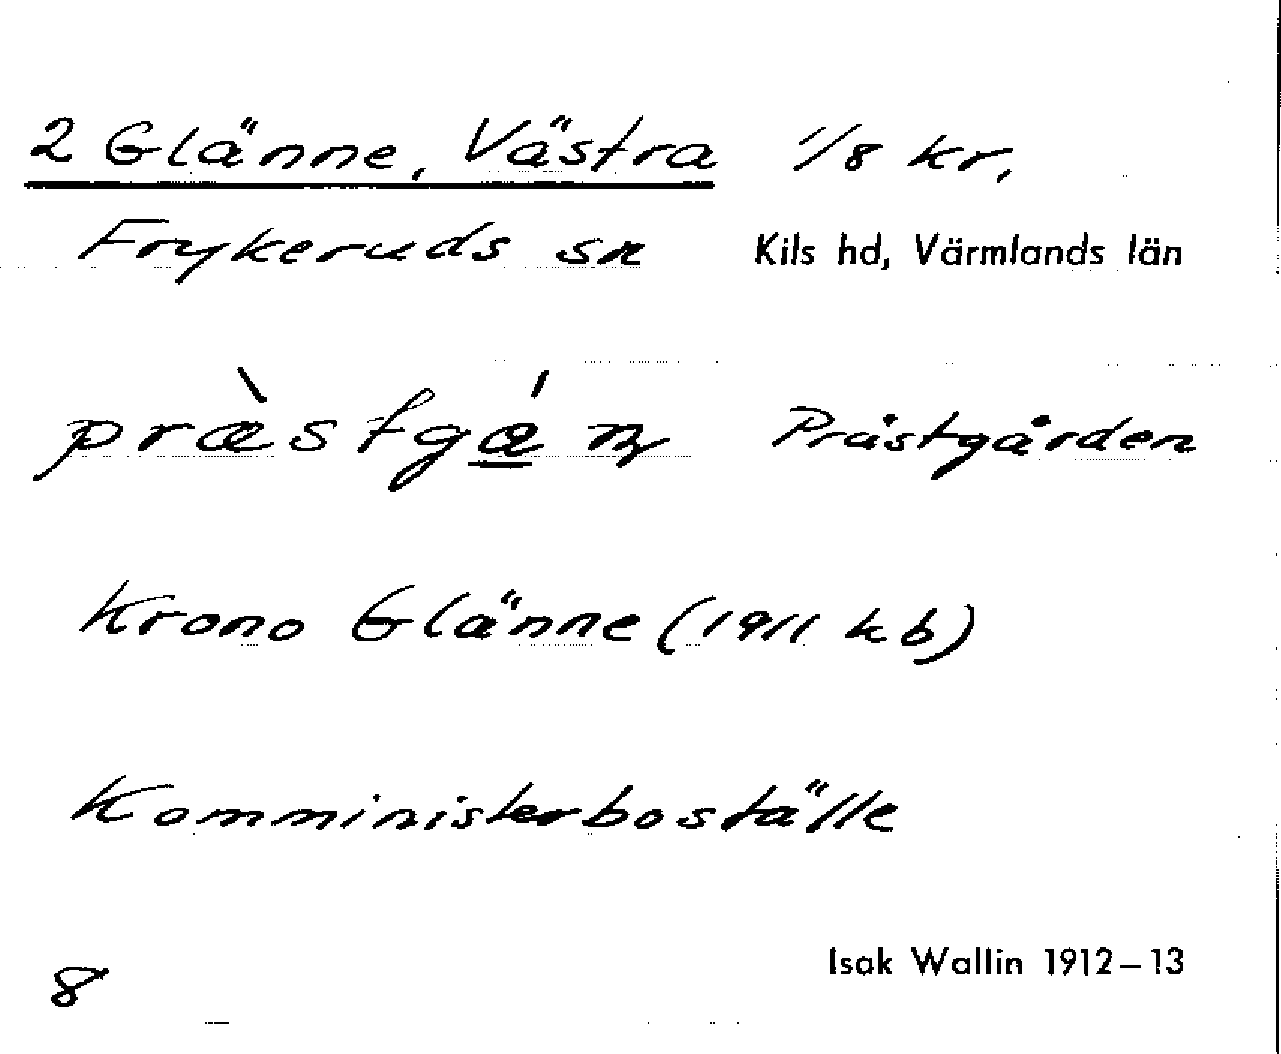 2 Glänne, Västra 1/8 kr,
Frykeruds sn Kils hd, Värmlands län
Prästgården
Krono Glänne (1911 kb)
Komministerboställe
Isak Wallin 1912–13
8